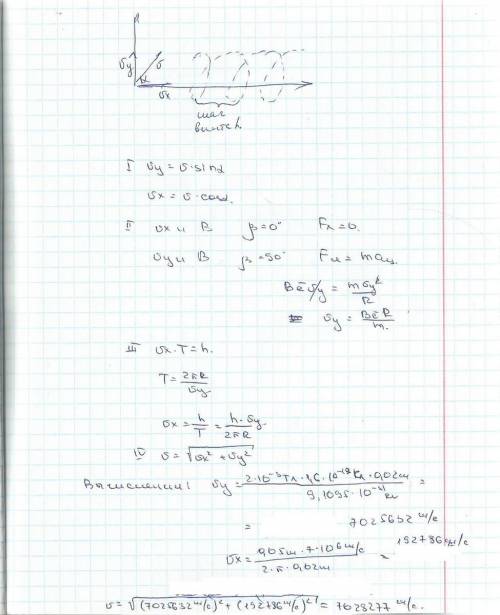 υy υ
α
υx
шаг
винта h
I υy = υ·sinα
υx = υ·cosα.
II υx и B β=0° Fл=0.
υy и B β=90° Fл = maц.
Bēυy = mυy²/R
υy = BēR/m.
III υx·T = h.
T = 2πR/υy
υx = h/T = h·υy/2πR
IV υ = √υx² + υy²
Вычисления: υy = 2·10⁻³Тл·1,6·10⁻¹⁹Кл·0,02м / 9,1095·10⁻³¹кг =
= 7025632 м/с
υx = 0,05м·7·106 м/с / 2·π·0,02м = 192786 м/с
υ = √(7025632 м/с)² + (192786 м/с)² = 7028277 м/с.